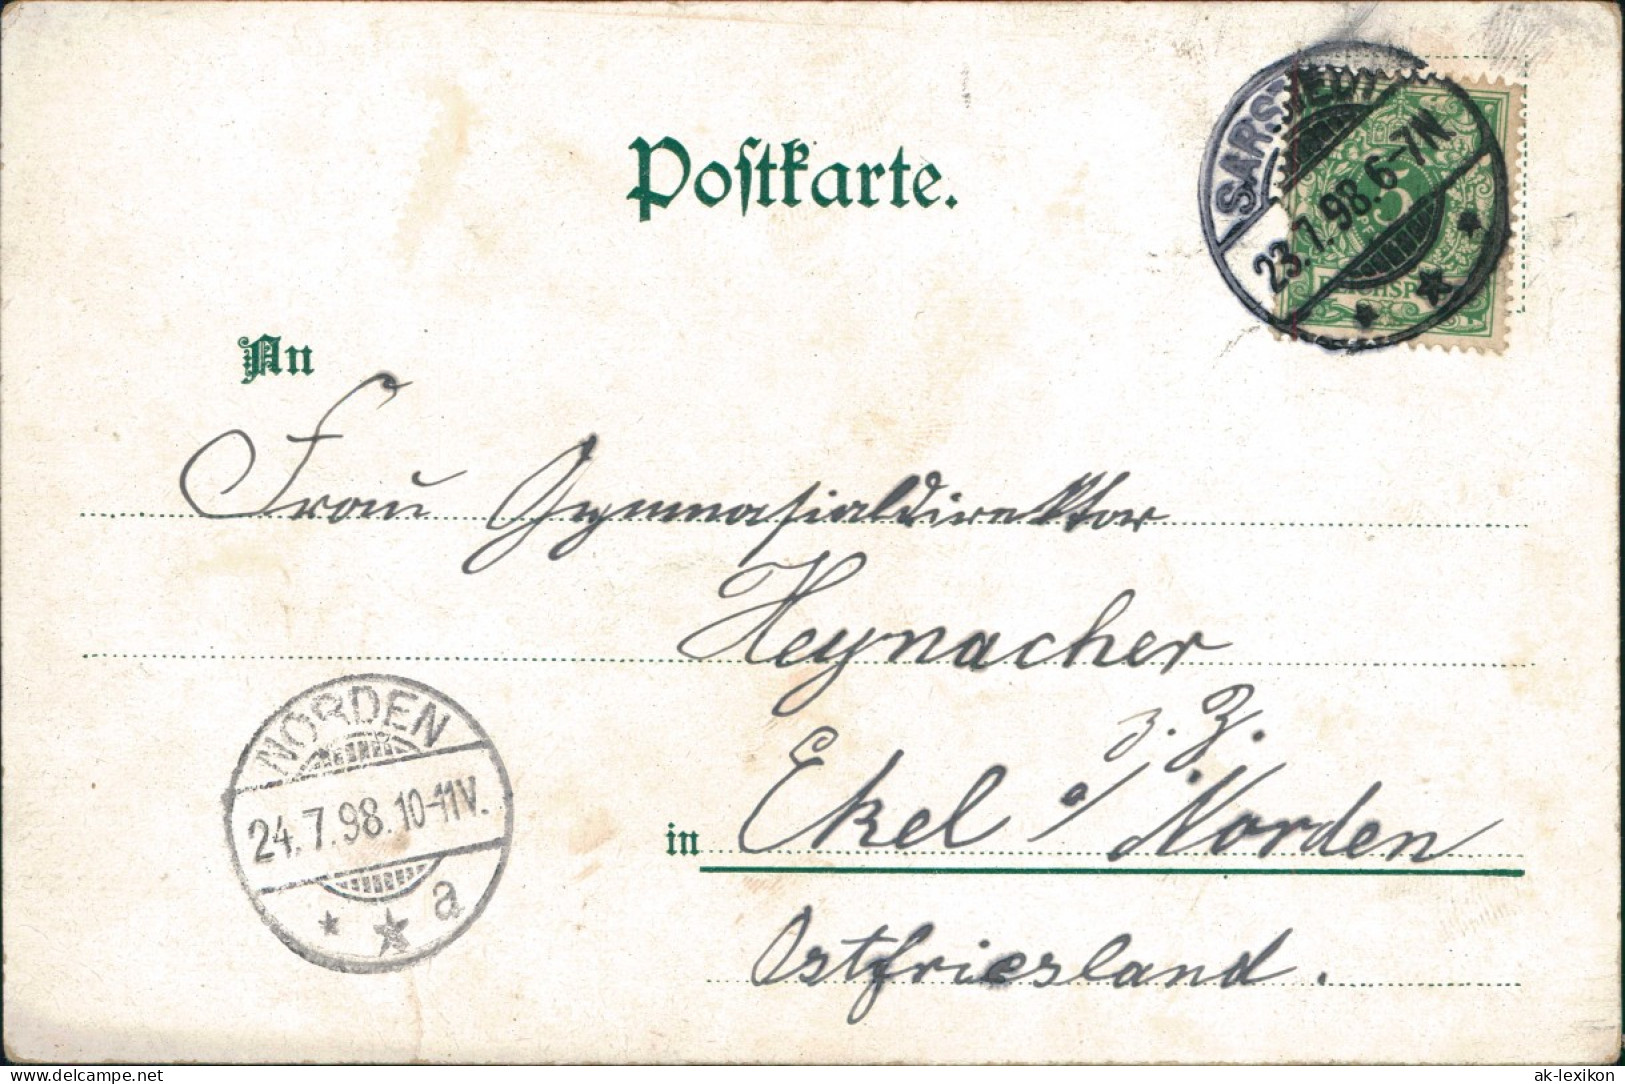 Postkarte.
SARSTEDT
23.7.98.6-7N
5
REICHSP
An
Frau Gymnasialdirektor
Heynacher
z. Z.
in Ekel a/Norden
Ostfriesland.
NORDEN
24.7.98.10-11V.
a
www.delcampe.net
ak-lexikon